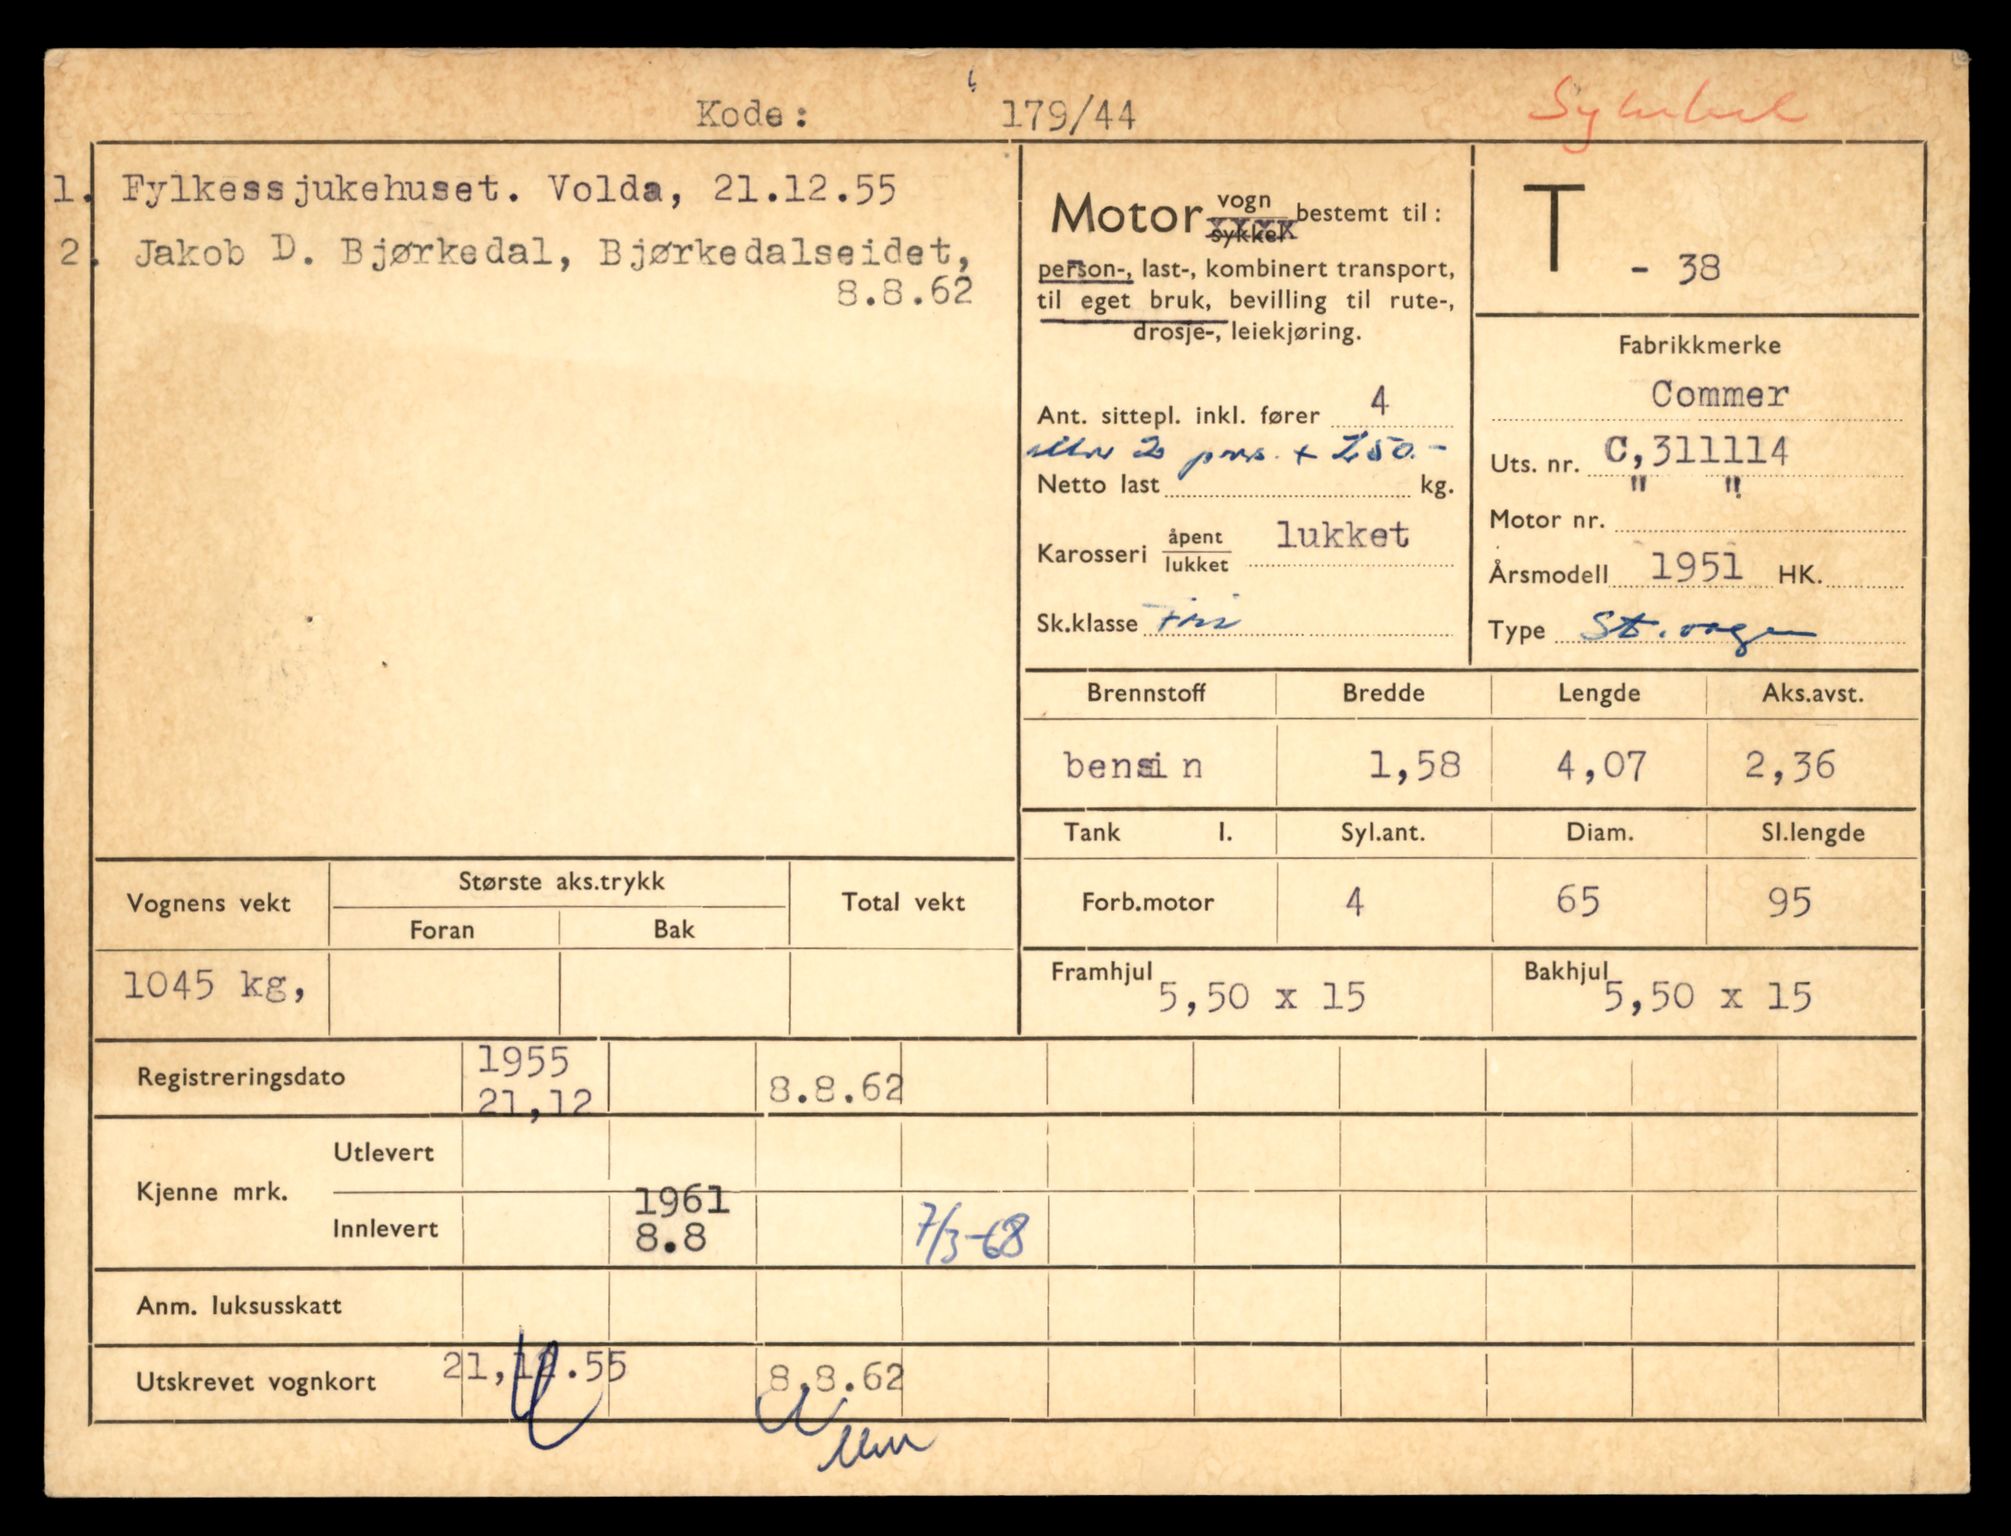 Kode: 179/44
1. Fylkessjukehuset. Volda, 21.12.55
2. Jakob D. Bjørkedal, Bjørkedalseidet,
8.8.62
Motor vogn sykkel bestemt til:
person-, last-, kombinert transport,
til eget bruk, bevilling til rute-,
drosje-, leiekjøring.
Ant. sittepl. inkl. fører 4
eller 2 pers. + 250.-
Netto last kg.
Karosseri åpent lukket lukket
Sk.klasse
T - 38
Fabrikkmerke
Commer
Uts. nr. C,311114
Motor nr. " "
Årsmodell 1951 HK.
Type St.vogn
Brennstoff Bredde Lengde Aks.avst.
bensin 1,58 4,07 2,36
Tank l. Syl.ant. Diam. Sl.lengde
Forb.motor 4 65 95
Framhjul 5,50 x 15 Bakhjul 5,50 x 15
Vognens vekt Største aks.trykk Total vekt
Foran Bak
1045 kg,
Registreringsdato 1955 21,12 8.8.62
Kjenne mrk. Utlevert
Innlevert 1961 8.8 7/3-68
Anm. luksusskatt
Utskrevet vognkort 21,12.55 8.8.62